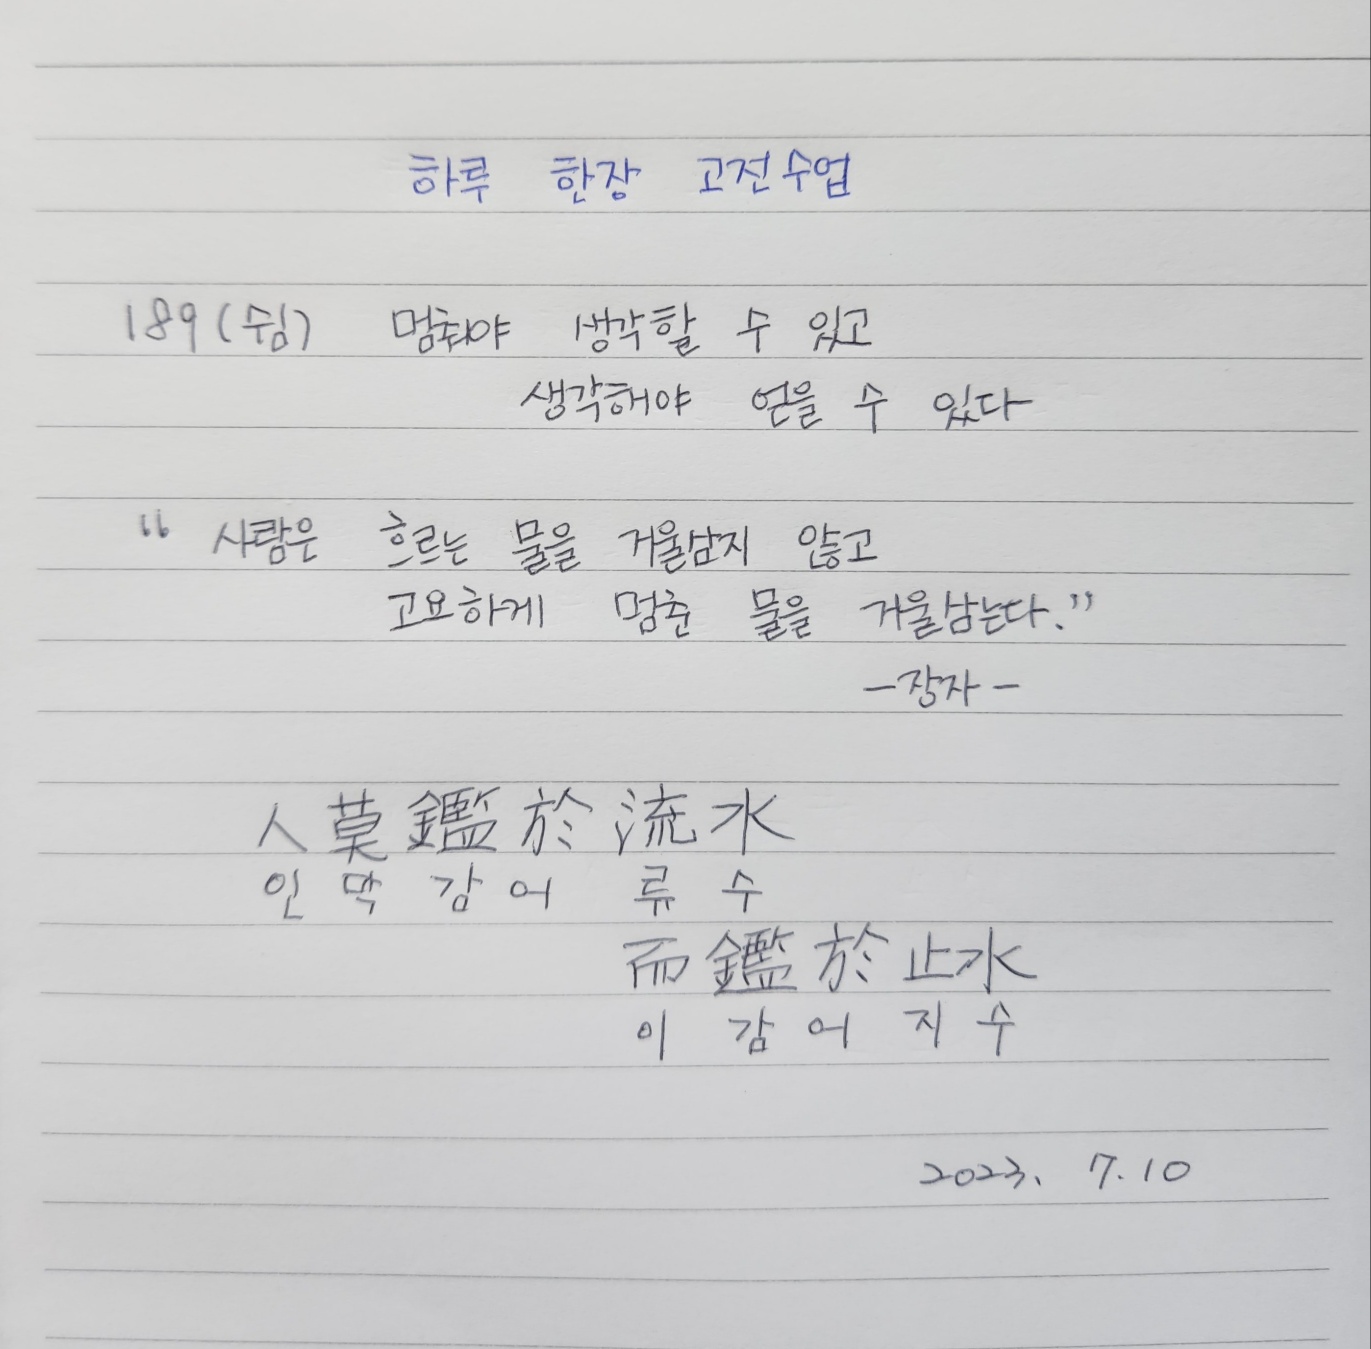 하루 한장 고전수업
189 (쉼) 멈춰야 생각할 수 있고
생각해야 얻을 수 있다
“ 사람은 흐르는 물을 거울삼지 않고
고요하게 멈춘 물을 거울삼는다.”
- 장자 -
人莫鑑於流水
인 막 감 어 류 수
而鑑於止水
이 감 어 지 수
2023. 7. 10